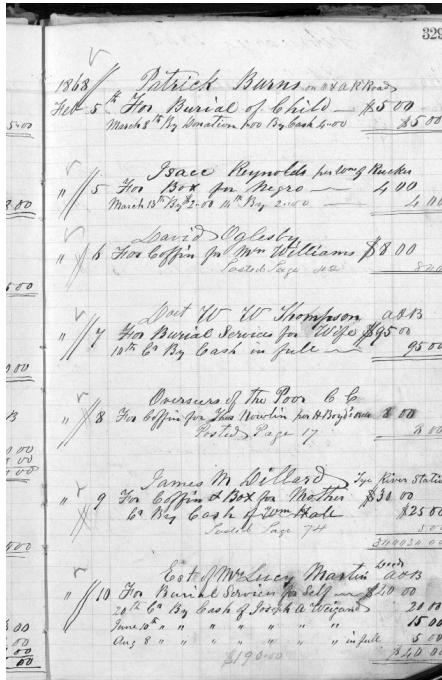 329
1868 Patrick Burns on O & A R Road
Feb 5th For Burial of Child — $5 00
March 8th By Donation 1.00 By Cash 4.00 $5 00
Isacc Reynolds per Wm Rucker
" 5 For Box for Negro — 4 00
March 13th By $2.00 14th By 2.00 — 4 00
David Oglesby
" 6 For Coffin for Mrs Williams $8 00
Posted Page 8 00
Doct W W Thompson A & B
" 7 For Burial Services for Wife $95 00
10th Cr By Cash in full — 95 00
Overseers of the Poor C C
" 8 For Coffin for Thos Nowlin per H Boyd's 8 00
Posted Page 17 8 00
James M Dillard Tye River Station
" 9 For Coffin & Box for Mother $30 00
Cr By Cash of Wm Hall $25 00
Posted Page 74 5 00
Est of Mrs Lucy Martin A & B
" 10 For Burial Services for Self — $40 00
20th Cr By Cash of Joseph A Weigand 20 00
June 10th " " " " " " 15 00
Aug 8 " " " " " " in full 5 00
$190.00 $40 00